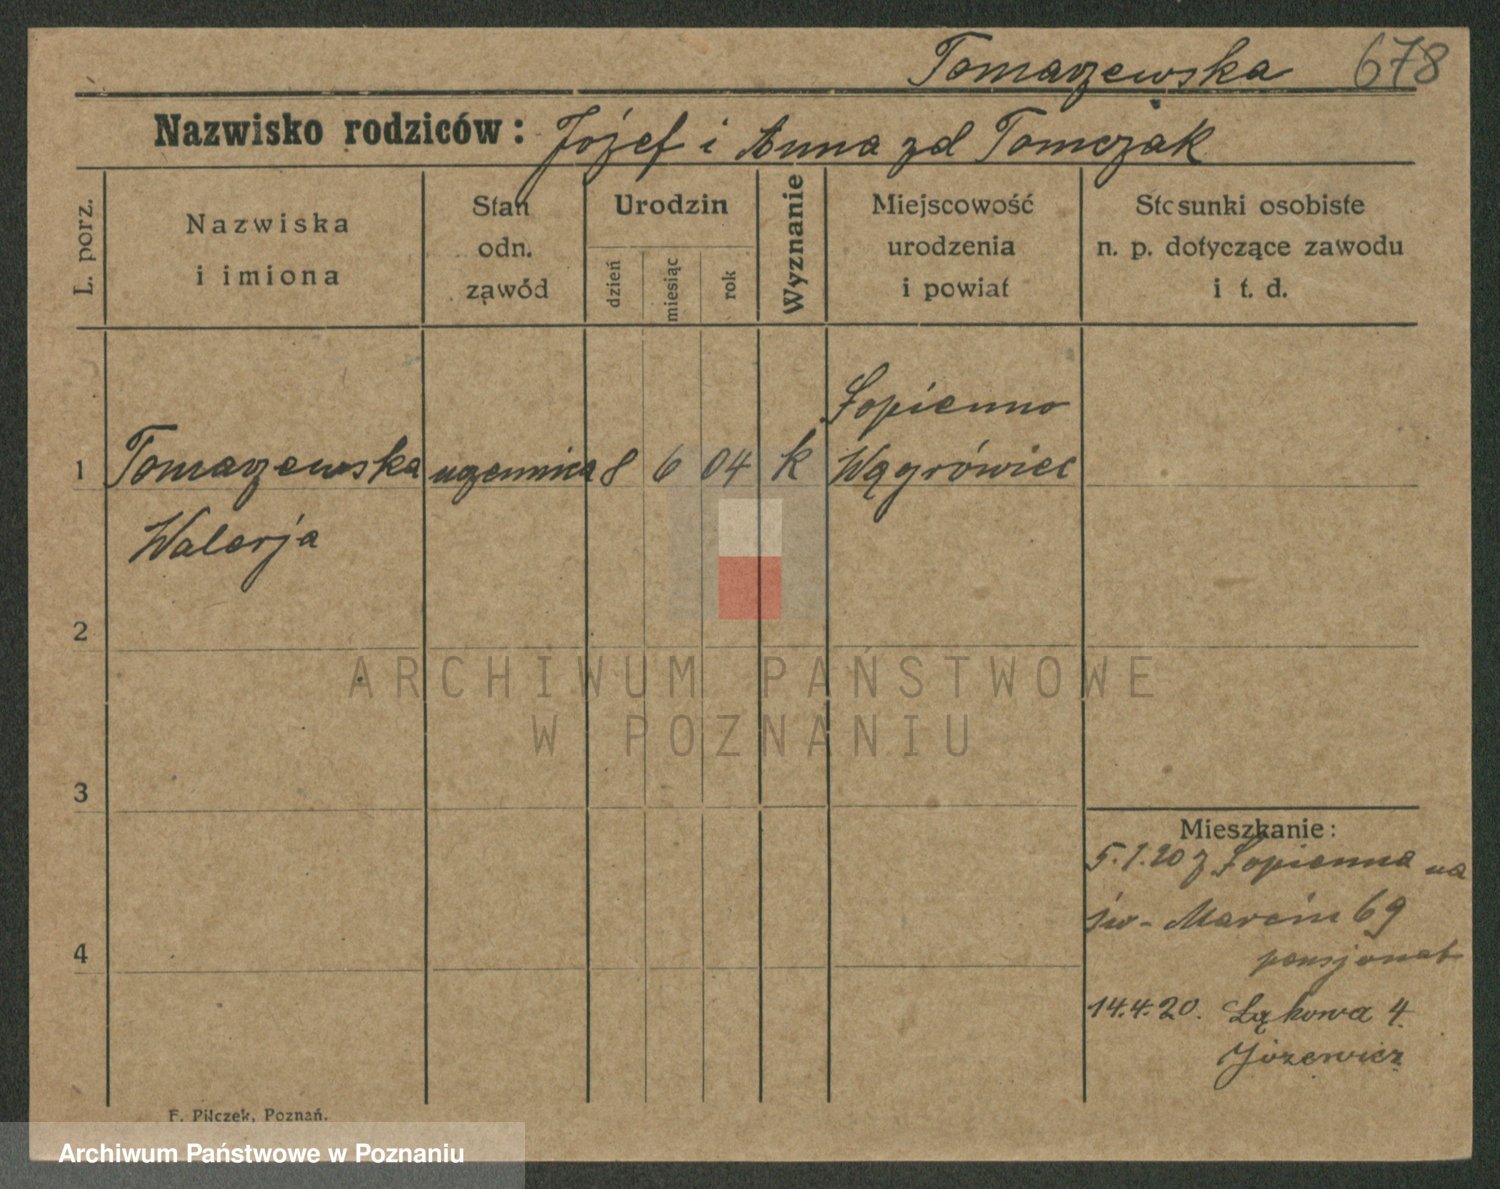 Tomaszewska 678
Nazwisko rodziców: Józef i Anna zd Tomczak
L. porz.
Nazwiska
i imiona
Stan
odn.
zawód
Urodzin
dzień
miesiąc
rok
Wyznanie
Miejscowość
urodzenia
i powiat
Stosunki osobiste
n. p. dotyczące zawodu
i t. d.
1
Tomaszewska
Walerja
uczennica
8 6 04 k
Łopienno
Wągrówiec
2
3
4
ARCHIWUM PAŃSTWOWE
W POZNANIU
Mieszkanie:
5.1.20 z Łopienna na
św- Marcin 69
pensjonat
14.4.20. Łąkowa 4
F. Pilczek, Poznań.
Archiwum Państwowe w Poznaniu